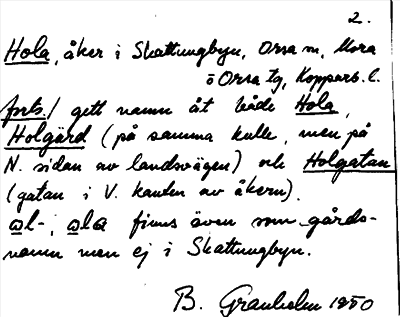 2.
Hola, åker i Skattungbyn, Orsa sn, Mora
o Orsa tg, Kopparb. l.
forts./ gett namn åt både Hola,
Holgärd (på samma kulle, men på
N. sidan av landsvägen) och Holgatan
(gatan i V. kanten av åkern).
ol-, ola finns även som gårds-
namn men ej i Skattungbyn.
B. Granholm 1950